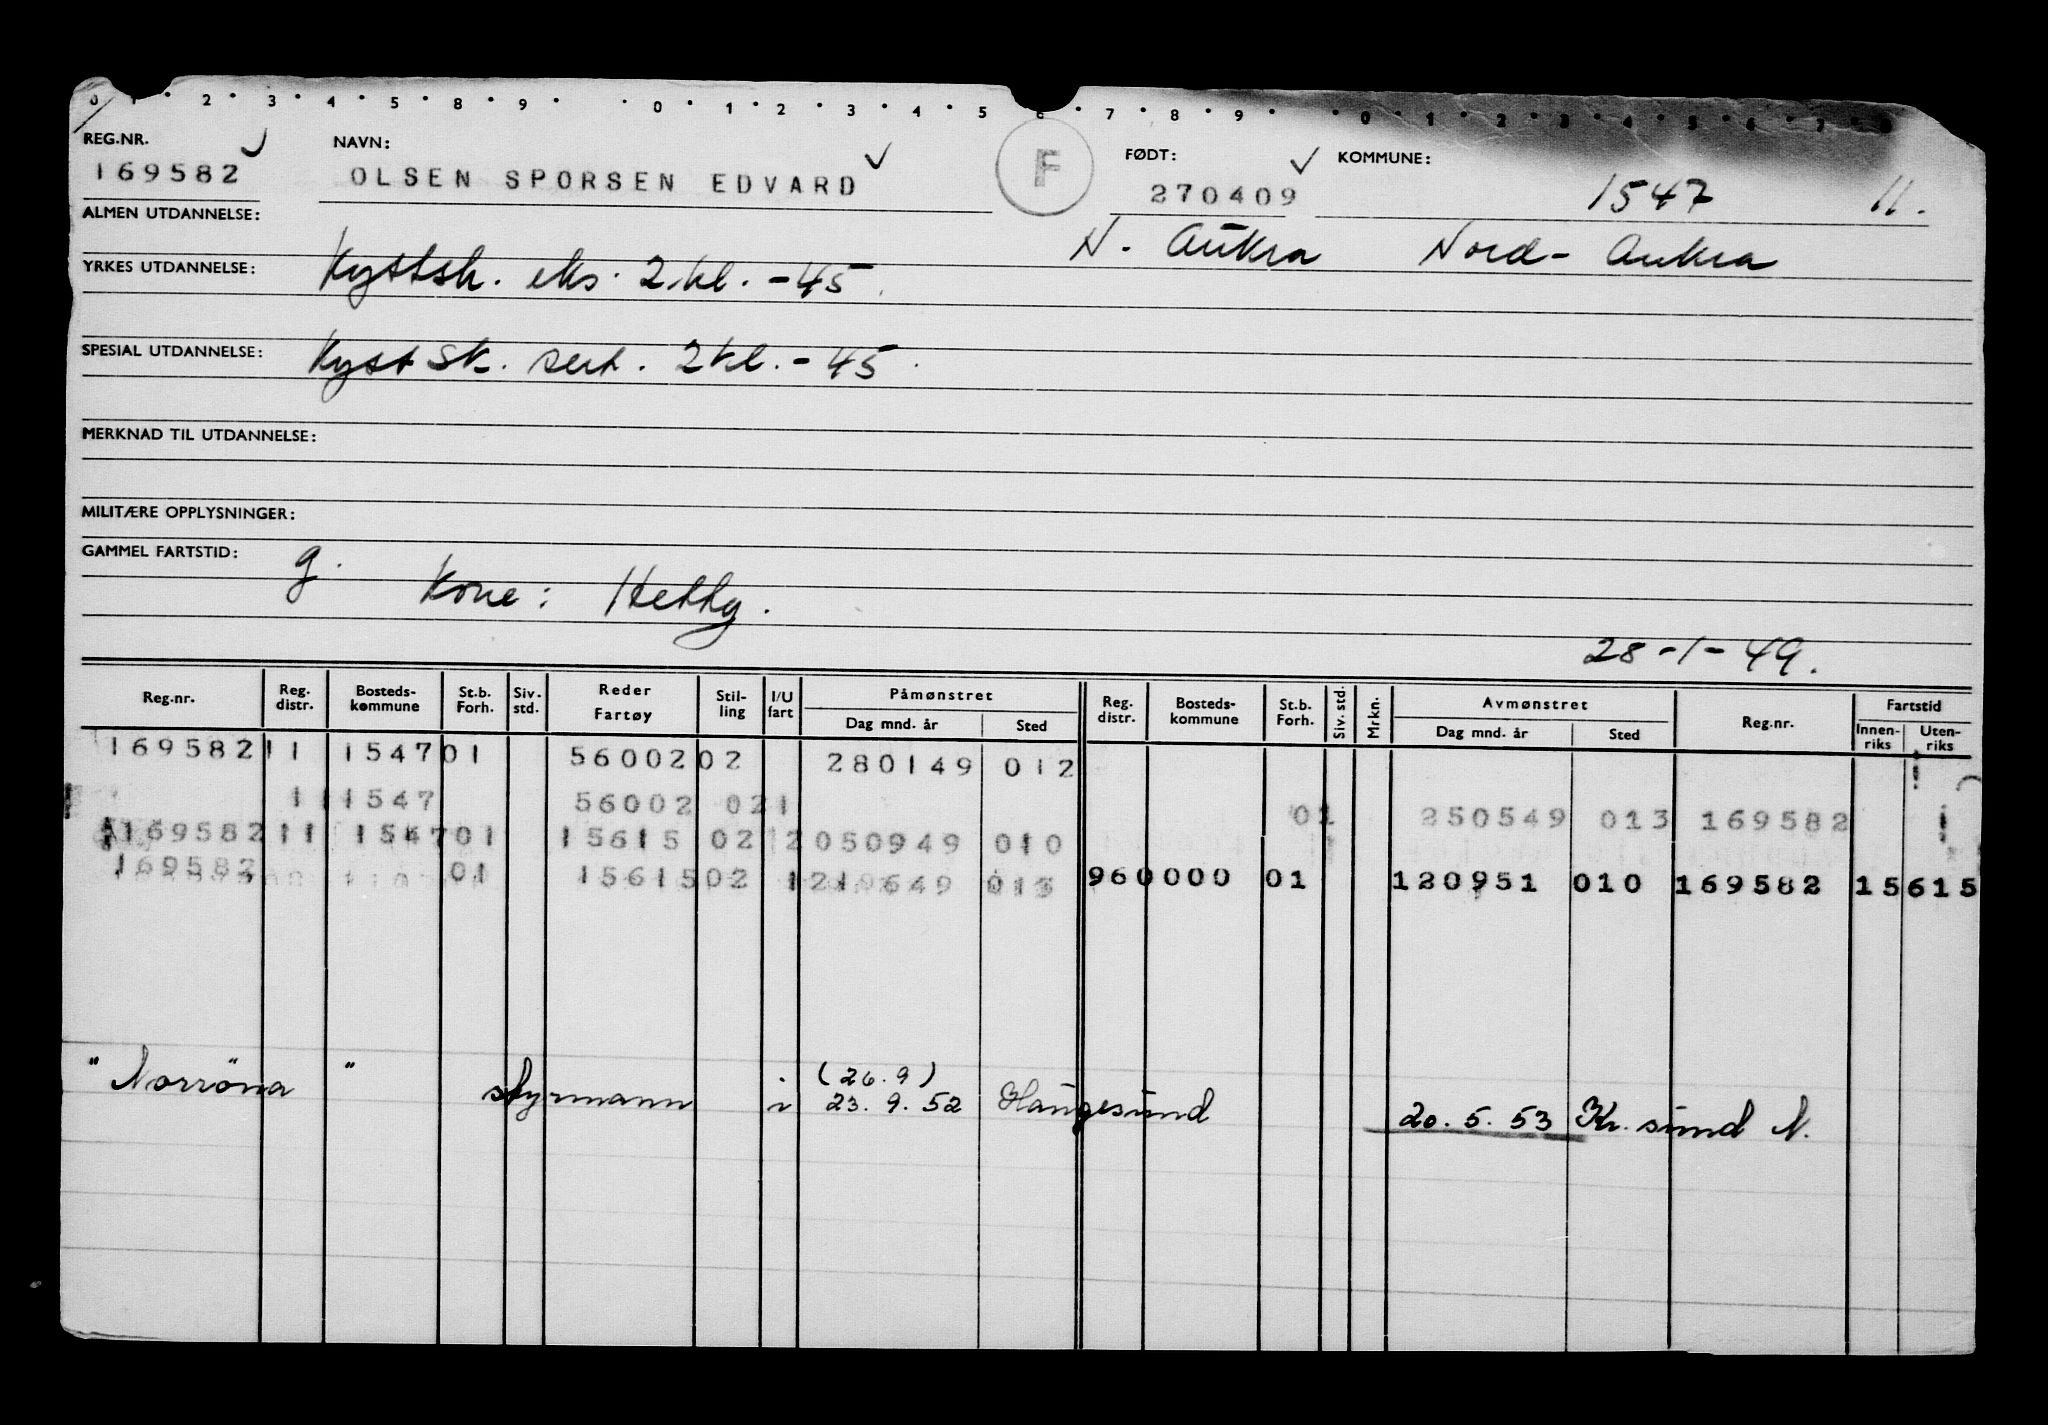 0 1 2 3 4 5 8 9 0 1 2 3 4 5 6 7 8 9 0 1 2 3 4 5 6 7 8
REG.NR. NAVN: F FØDT: KOMMUNE:
169582 OLSEN SPORSEN EDVARD 270409 1547 11.
ALMEN UTDANNELSE: N. Aukra Nord-Aukra
YRKES UTDANNELSE: Kystsk. eks. 2 kl. -45.
SPESIAL UTDANNELSE: Kyst Sk. sert. 2 kl. -45.
MERKNAD TIL UTDANNELSE:
MILITÆRE OPPLYSNINGER:
GAMMEL FARTSTID: g. Kone: Hetty.
28-1-49.
Reg.nr. Reg. distr. Bosteds-kommune St.b. Forh. Siv. std. Reder Fartøy Stil-ling I/U fart Påmønstret Dag mnd. år Sted Reg. distr. Bosteds-kommune St.b. Forh. Siv. std. Mrkn. Avmønstret Dag mnd. år Sted Reg.nr. Fartstid Innen-riks Uten-riks
169582 11 1547 01 56002 02 280149 012
1 1 1547 56002 02 1 01 250549 013 169582
169582 11 1547 01 15615 02 2 050949 010
169582 01 15615 02 1 960000 01 120951 010 169582 15615
" Norröna " " styrmann i (26.9) 23.9.52 Haugesund 20.5.53 Kr. sund N.